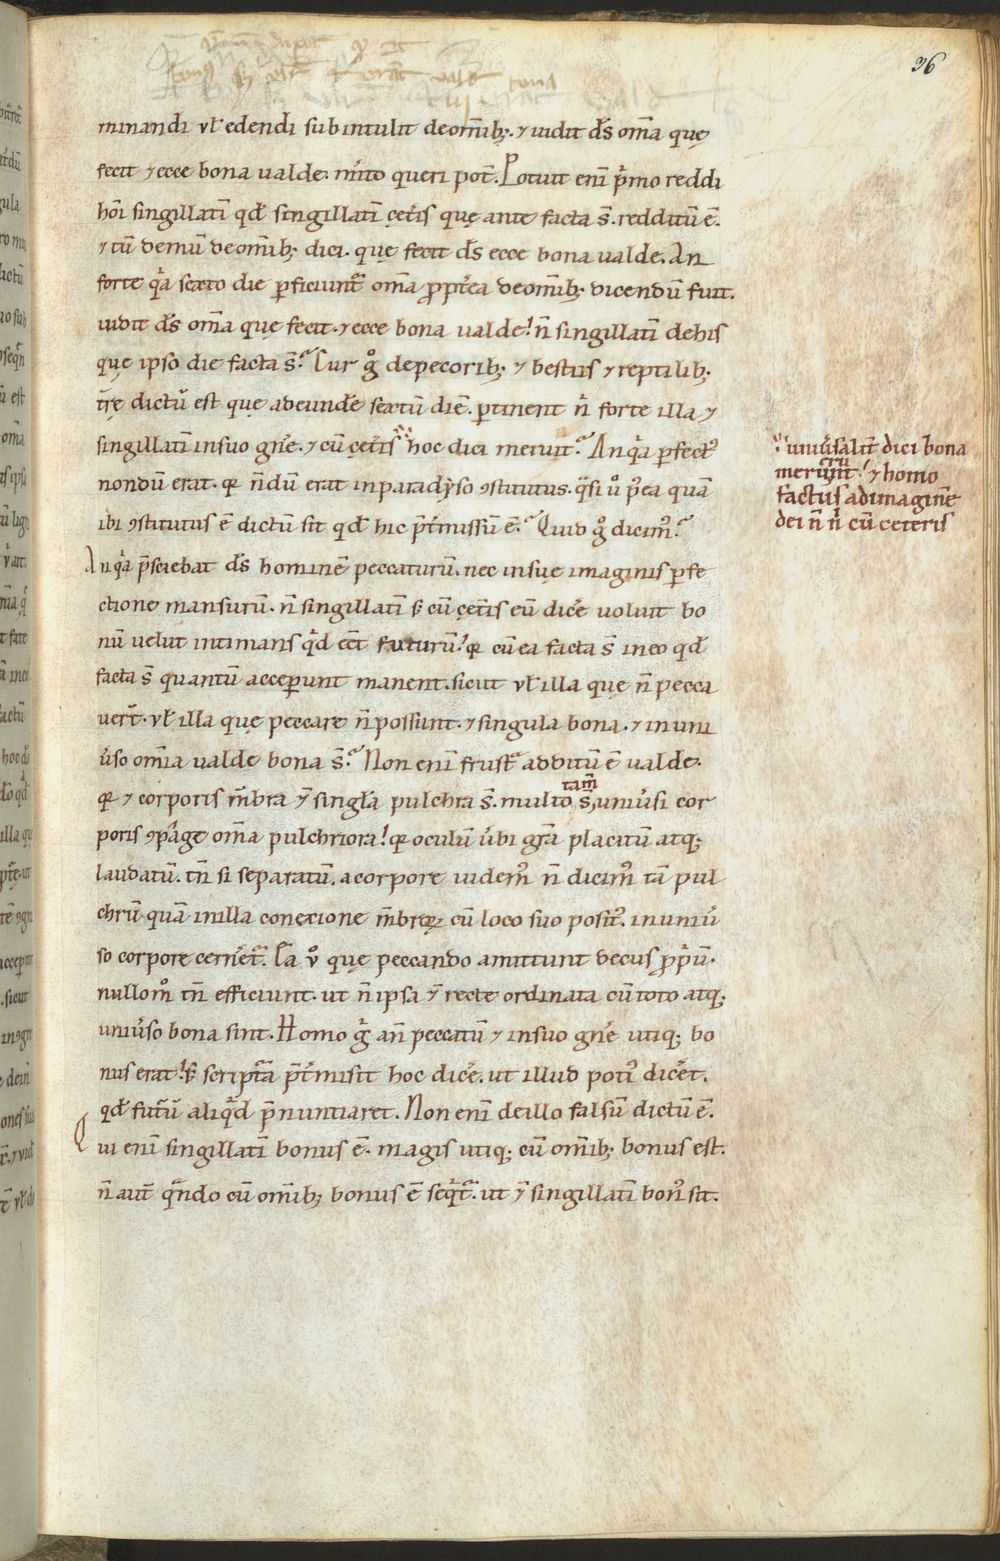 36
minandi vł edendi subintulit deomīb;. ⁊ uidit d̄s om̄a quę
fecit ⁊ecce bona ualde. mito queri pot̄. Potuit enī pͥmo reddi
hoī singillatī qd̄ singillatī cęt̄is quę ante facta s̄. redditū ē.
⁊ tū demū deomīb; dici. quę fecit d̄s ecce bona ualde. An
forte qͣa sexto die ꝑficiunt̄ om̄a ꝓpt̄ea deomīb; dicendū fuit.
uidit d̄s om̄a quę fecit. ⁊ecce bona ualde! n̄ singillatī dehis
quę ipso die facta s̄? Cur gͦ depecorib; ⁊ bestiis ⁊ reptilib;
t̄rę dictū est quę adeundē sextū diē. ꝑtinent n̄ forte illa ⁊
singillatī insuo gn̄e. ⁊ cū cęt̄is hoc dici meruit? An qͣa ꝑfect᷒
nondū erat. q̄ n̄dū erat inparadẏso ꝯstitutus. qͣsi ū pͥea quā
ibi ꝯstitutus ē dictū sit qd̄ hic p̄t̄missū ē? Quid gͦ dicim᷒?
An qͣa p̄sciebat d̄s hominē peccaturū. nec insuę imaginis ꝑfe
ctione mansurū. n̄ singillatī s; cū cęt̄is eū dic̄e uoluit bo
nū uelut intimans qͥd eēt futurū! q̄ cū ea facta s̄ ineo qd̄
facta s̄ quantū acceꝑunt manent. sicut vł illa quę n̄ pecca
uer̄t. vł illa quę peccare n̄ possunt. ⁊ singula bona. ⁊ in uni
ūso om̄ia ualde bona s̄? Non enī frust̄ additū ē ualde.
q̄ ⁊ corporis m̄bra &̄ singl̄a pulchra s̄. multo tam̄ s̄, uniūsi cor
poris ꝯpage om̄a pulchriora! q̄ oculū ūbi gr̄a placitū atq;
laudatū. tn̄ si separatū. acorpore uidem᷒ n̄ dicim᷒ tā pul
chrū quā inilla conexione m̄broꝝ cū loco suo posit᷒. in uniū
so corpore cern̄et̄. Ea ū quę peccando amittunt decus ꝓpū.
nullom᷒ tn̄ efficiunt. ut n̄ ipsa &̄ recte ordinata cū toto atq;
uniūso bona sint. Homo gͦ an̄ peccatū ⁊ insuo gn̄e utiq; bo
nus erat! s; script̄a p̄t̄misit hoc dic̄e. ut illud poti᷒ dic̄et.
qd̄ futūū aliqͥd p̄nuntiaret. Non enī deillo falsū dictū ē.
Qui enī singillatī bonus ē. magis utiq; cū omīb; bonus est.
n̄ aut̄ qͣndo cū omīb; bonus ē seqͥt̄. ut &̄ singillatī bon᷒ sit.
uniūsalit̄ dici bona
meruerunt! ⁊ homo
factus adimaginē
dei n̄ n̄ cū ceteris